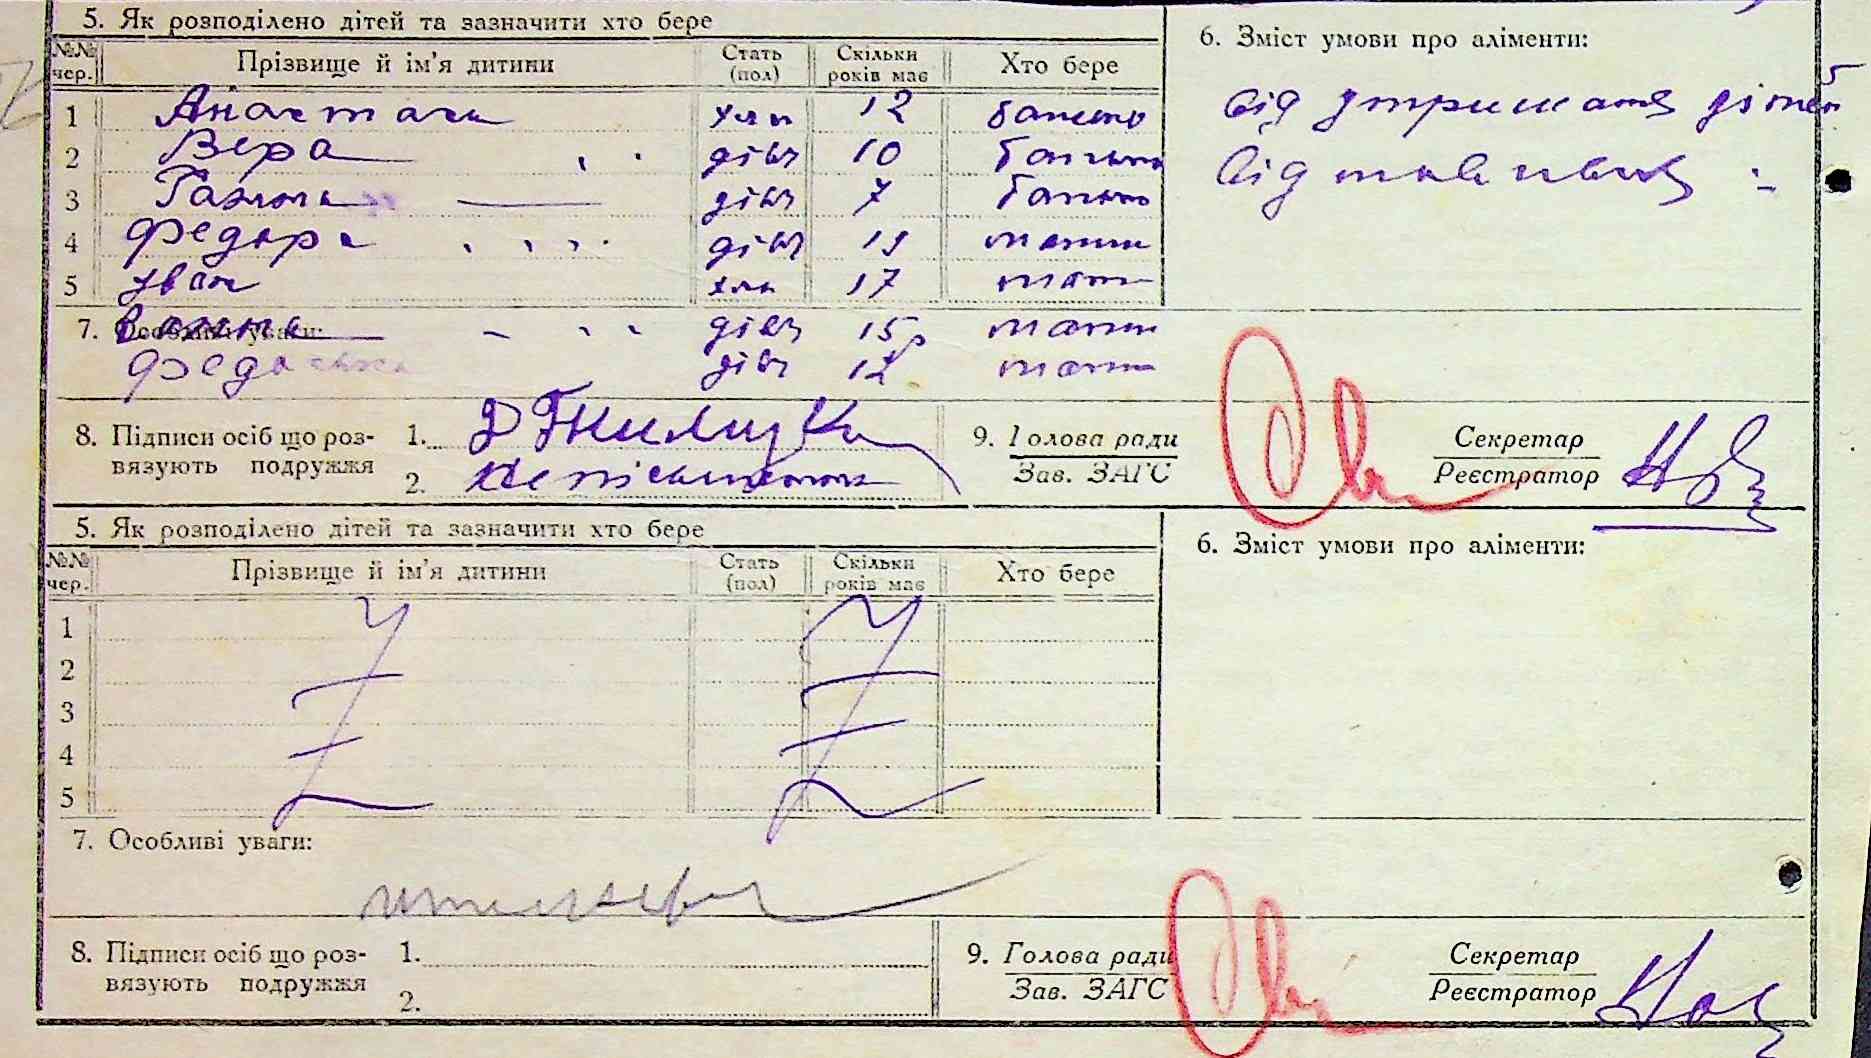 5. Як розподілено дітей та зазначити хто бере
6. Зміст умови про аліменти:
№№ чер. Прізвище й ім'я дитини Стать (пол) Скільки років має Хто бере
1 хлп 12 батько
від утримання дітей
2 Вера дівч 10 батько
від
3 дівч 7 батько
4 Федора дівч 19 мати
5 Іван хлп 17 мати
7. Особливі уваги:
дівч 15 мати
Федоська дівч 12 мати
8. Підписи осіб що роз-
вязують подружжя
1.
2. Неписьменна
9. Голова ради
Зав. ЗАГС
Секретар
Реєстратор
5. Як розподілено дітей та зазначити хто бере
6. Зміст умови про аліменти:
№№ чер. Прізвище й ім'я дитини Стать (пол) Скільки років має Хто бере
1
2
3
4
5
7. Особливі уваги:
8. Підписи осіб що роз-
вязують подружжя
1.
2.
9. Голова ради
Зав. ЗАГС
Секретар
Реєстратор